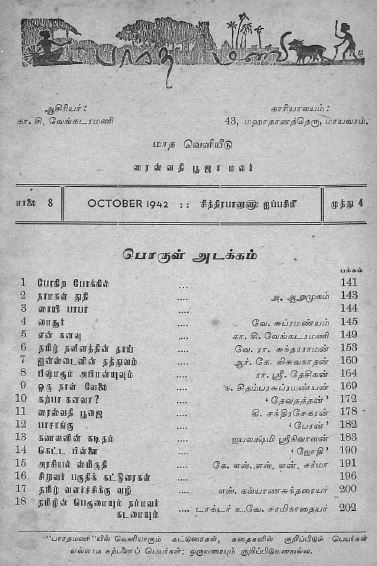 பாரத மணி
ஆசிரியர்:
கா. சி. வேங்கடரமணி
காரியாலயம்:
43, மஹாதானத்தெரு, மாயவரம்.
மாத வெளியீடு
ஸரஸ்வதி பூஜா மலர்
மாலை 8
OCTOBER 1942 :: சித்திரபானுஹு ஐப்பசிமீ
முத்து 4
பொருள் அடக்கம்
பக்கம்
1 போகிற போக்கில் .... 141
2 நாமகள் துதி .... அ. ஆறுமுகம் 143
3 ஸாயி பாபா .... 144
4 மைசூர் .... வே. சுப்ரமண்யம் 145
5 என் கனவு .... கா. சி. வேங்கடரமணி 149
6 தமிழ் நவீனத்தின் தாய் .... வே. ரா. சுந்தரராமன் 153
7 ஐன்ஸ்டைனின் தத்துவம் .... ஆர். கே. விசுவநாதன் 160
8 பீஷ்மரும் அபிமன்யுவும் .... ரா. ஸ்ரீ. தேசிகன் 164
9 ஒரு நாள் வேலை .... ந. சிதம்பரசுப்ரமண்யன் 169
10 கற்பா கனவா? .... ' தேவதத்தன் ' 172
11 ஸரஸ்வதி பூஜை .... கி. சந்திரசேகரன் 178
12 பாசாங்கு .... ' பேரன் ' 182
13 கணவனின் கடிதம் .... ஜயலக்ஷ்மி ஸ்ரீநிவாஸன் 183
14 கெட்ட பிள்ளை .... ' ஜோதி ' 190
15 அரசியல் ஸ்மிருதி .... கே. எஸ். எஸ். என். சர்மா 191
16 சிறுவர் பகுதிக் கட்டுரைகள் .... 196
17 தமிழ் வளர்ச்சிக்கு வழி .... எஸ். கல்யாணசுந்தரையர் 200
18 தமிழின் பெருமையும் நம்மவர்
கடமையும் .... டாக்டர் உ.வே. சாமிநாதையர் 202
"பாரதமணி"யில் வெளியாகும் கட்டுரைகள், கதைகளில் குறிப்பிடும் பெயர்கள்
எல்லாம் கற்பனைப் பெயர்கள்; ஒருவரையும் குறிப்பிடுவனவல்ல.